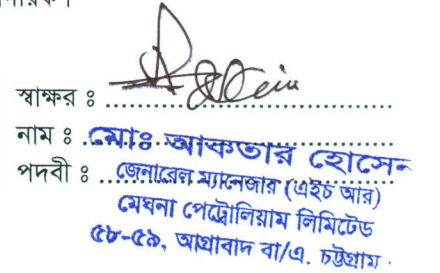 স্বাক্ষর ঃ
নাম ঃ মোঃ আকতার হোসেন
পদবী ঃ জেনারেল ম্যানেজার (এইচ আর)
মেঘনা পেট্রোলিয়াম লিমিটেড
৫৮-৫৯, আগ্রাবাদ বা/এ. চট্টগ্রাম.